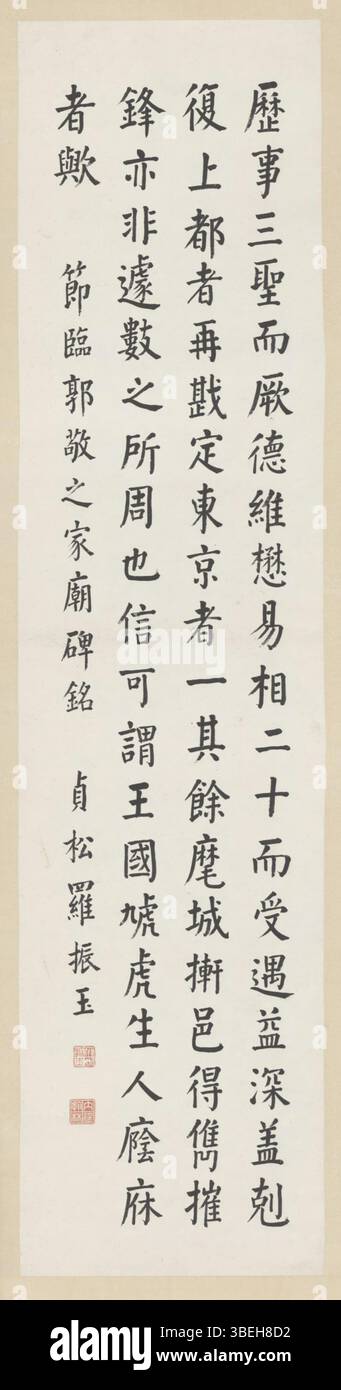 歷事三聖而厥德維懋易相二十而受遇益深蓋剋
復上都者再戡定東京者一其餘麾城摲邑得儁摧
鋒亦非遽數之所周也信可謂王國虓虎生人廕庥
者歟 節臨郭敬之家廟碑銘 貞松羅振玉
alamy
Image ID: 3BEH8D2
www.alamy.com